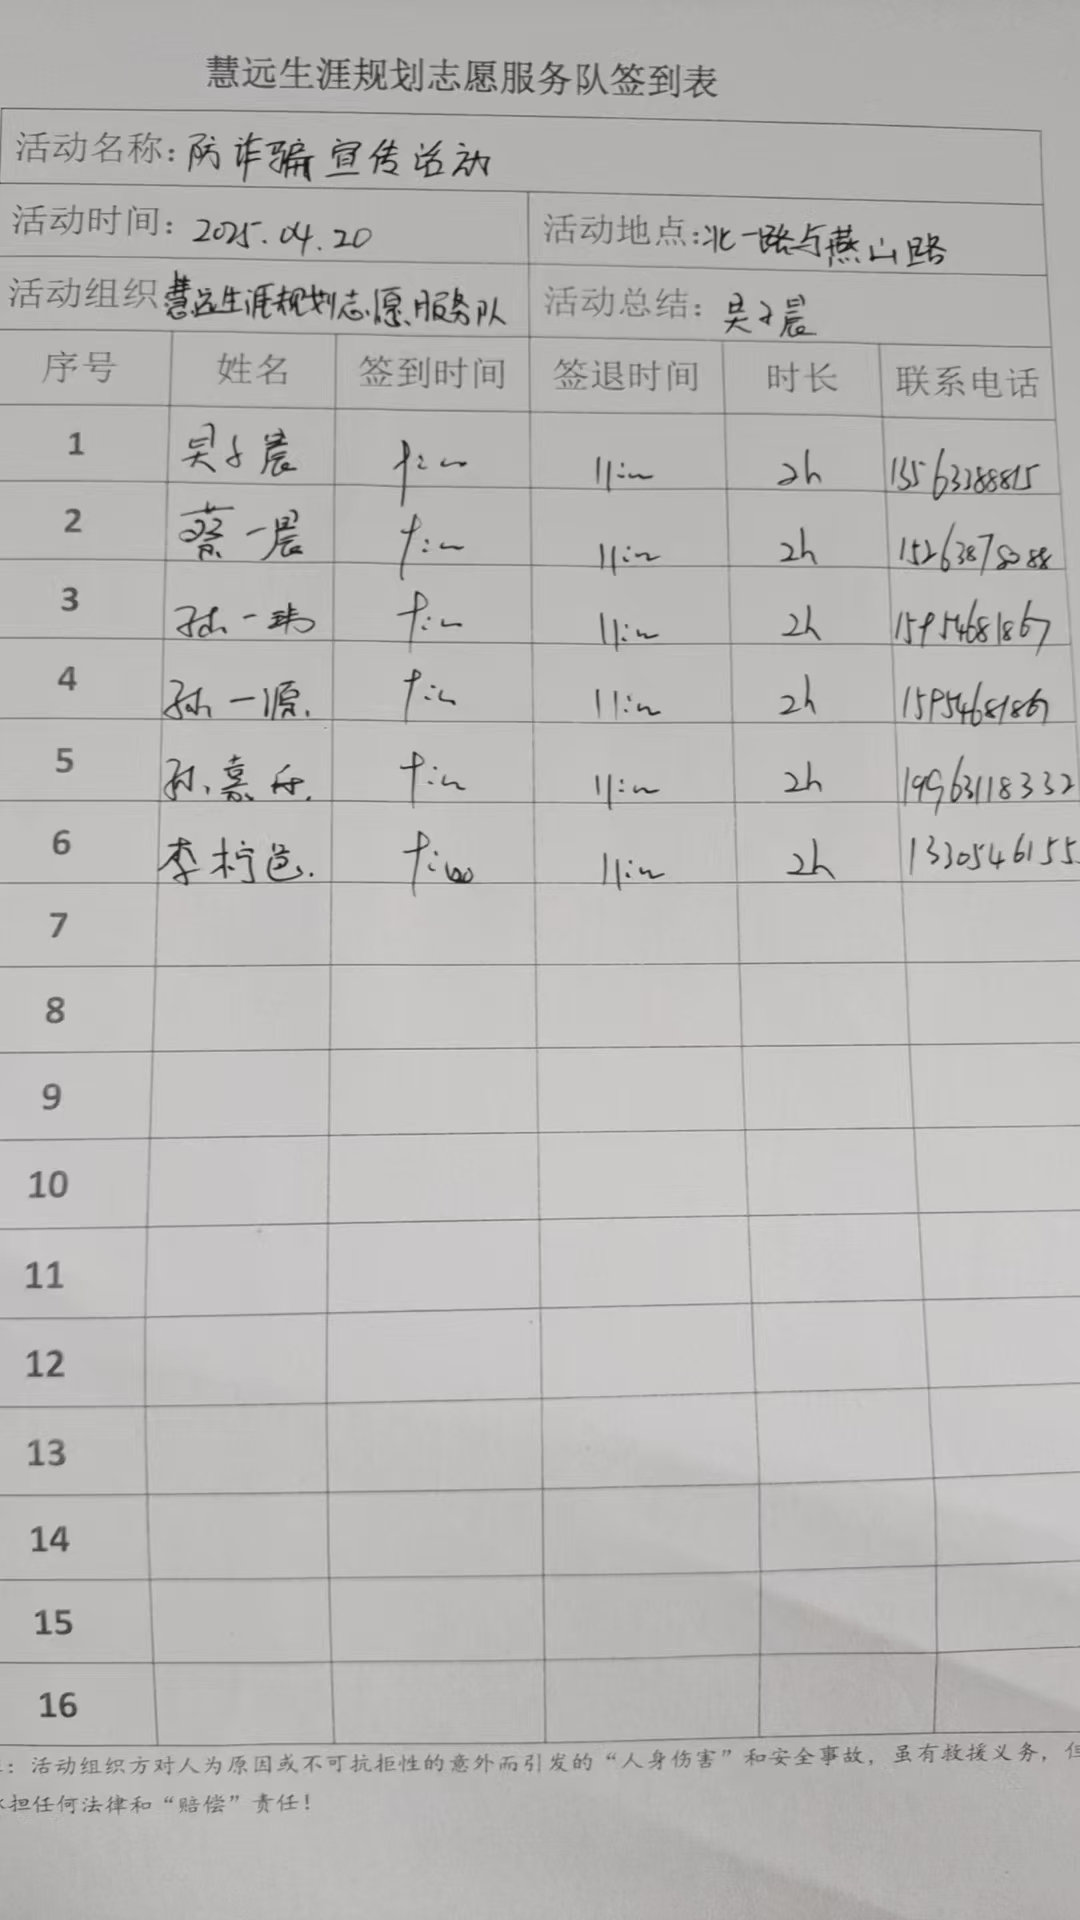 慧远生涯规划志愿服务队签到表
活动名称：防诈骗宣传活动
活动时间：2025.04.20 活动地点：北一路与燕山路
活动组织 慧远生涯规划志愿服务队 活动总结：吴子晨
序号 姓名 签到时间 签退时间 时长 联系电话
1 吴子晨 9:00 11:00 2h 13563388815
2 蔡一晨 9:00 11:00 2h 15263878088
3 孙一玮 9:00 11:00 2h 15954681867
4 孙一源. 9:00 11:00 2h 15954681867
5 孙嘉 9:00 11:00 2h 19963118332
6 李柠邑. 9:00 11:00 2h 1330546155
7
8
9
10
11
12
13
14
15
16
：活动组织方对人为原因或不可抗拒性的意外而引发的“人身伤害”和安全事故，虽有救援义务，但
担任何法律和“赔偿”责任！